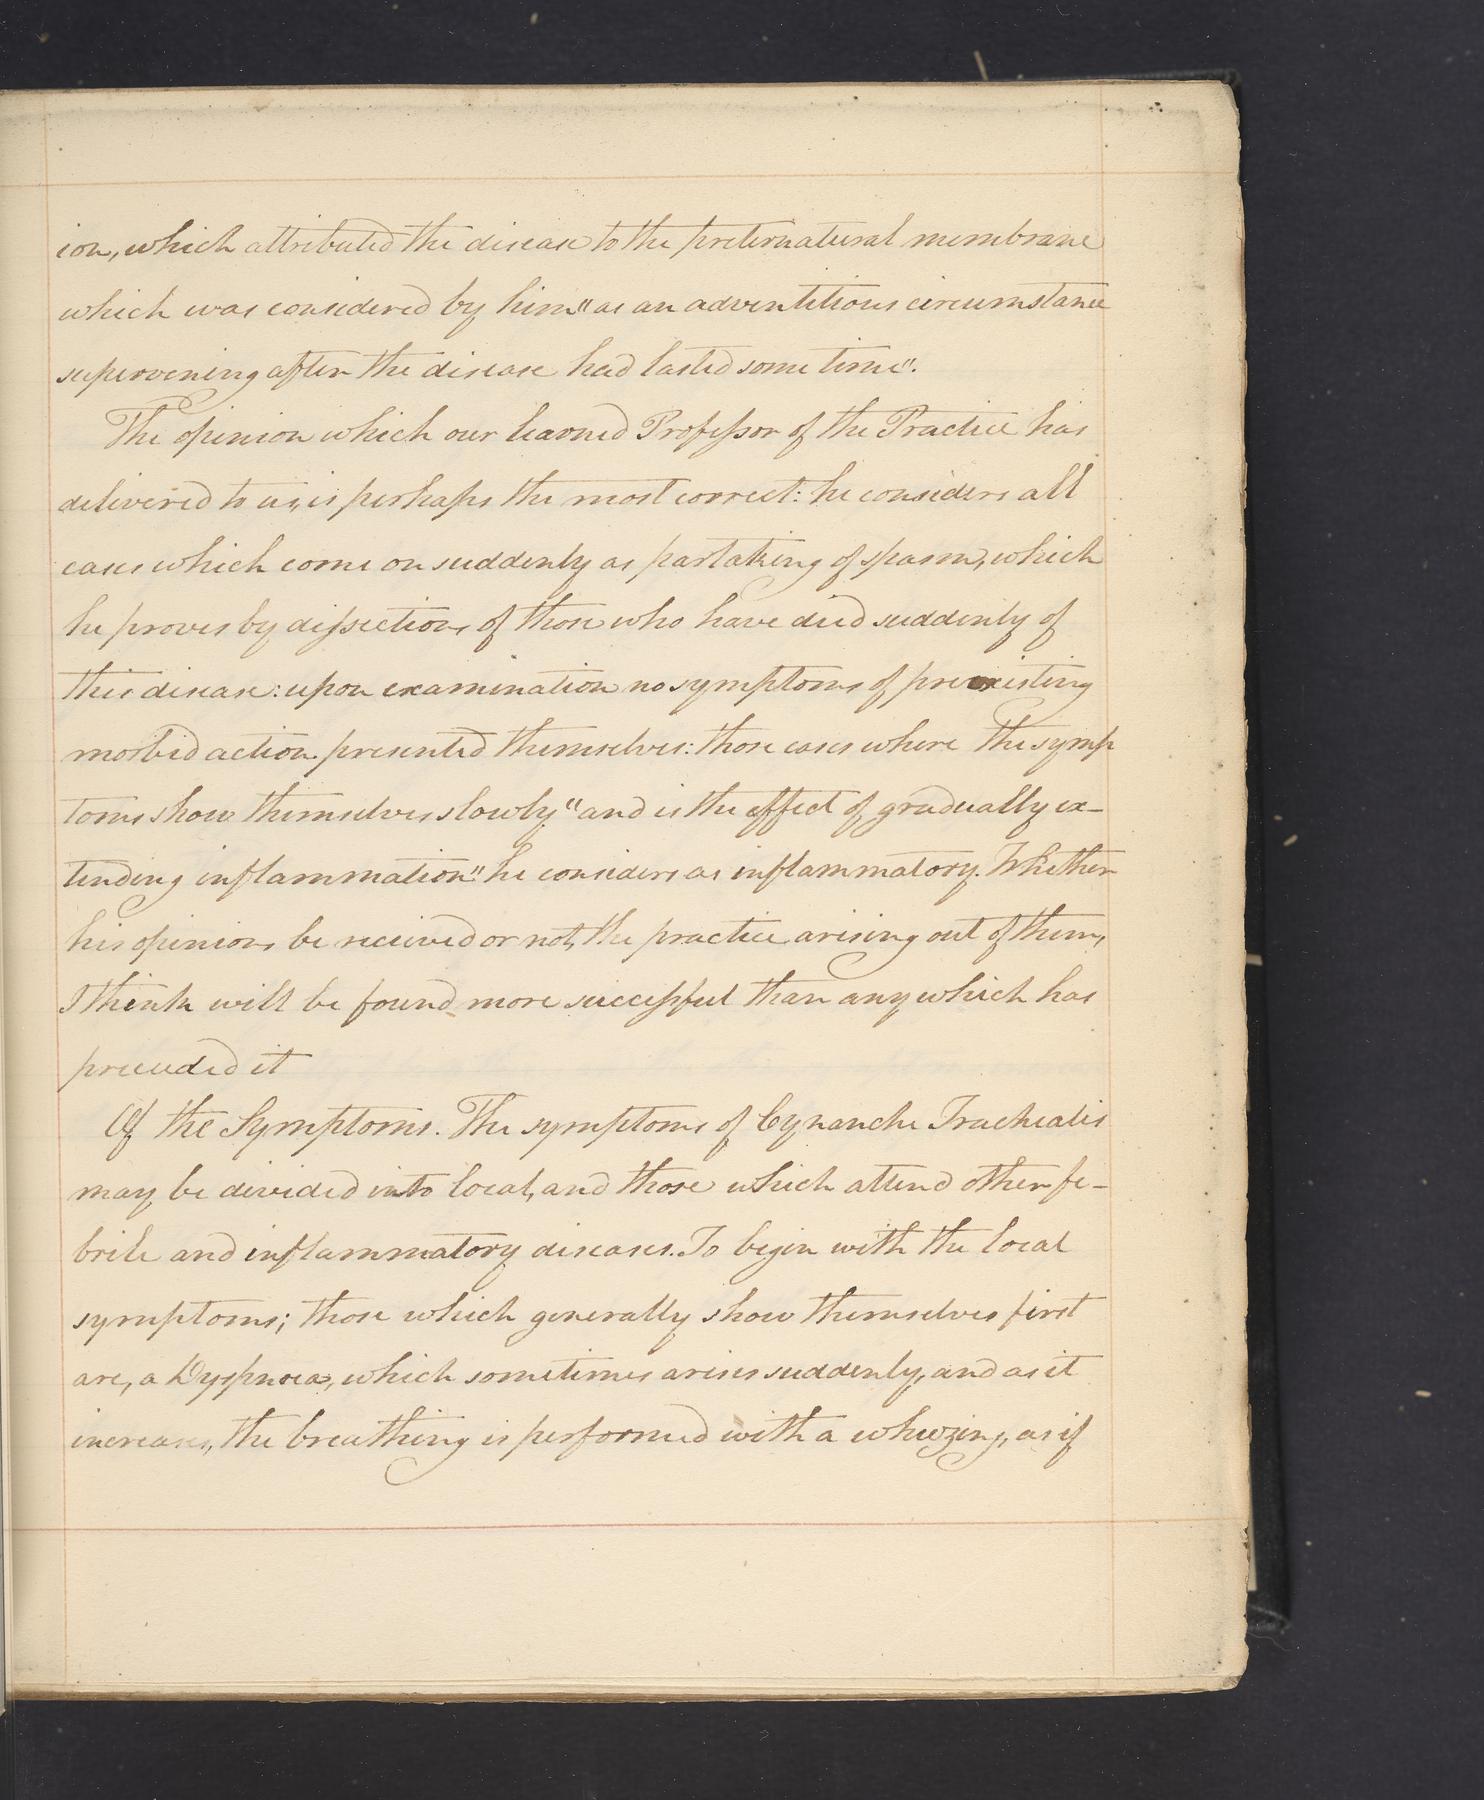 ion, which attributed the disease to the preternatural membrane
which was considered by him "as an adventitious circumstance
supervening after the disease had lasted some time".
The opinion which our learned Professor of the Practice has
delivered to us, is perhaps the most correct: he considers all
cases which come on suddenly as partaking of spasm, which
he proves by dissections of those who have died suddenly of
this disease: upon examination no symptoms of preexisting
morbid action presented themselves: those cases where the symp
toms show themselves slowly "and is the effect of gradually ex-
tending inflammation" he considers as inflammatory. Whether
his opinions be received or not, the practice arising out of them,
I think will be found more successful than any which has
preceeded it
Of the Symptoms. The symptoms of Cynanche Trachealis
may be divided into local, and those which attend other fe-
brile and inflammatory diseases. To begin with the local
symptoms; those which generally show themselves first
are, a Dyspnoea, which sometimes arises suddenly, and as it
increases, the breathing is performed with a whezing, as if